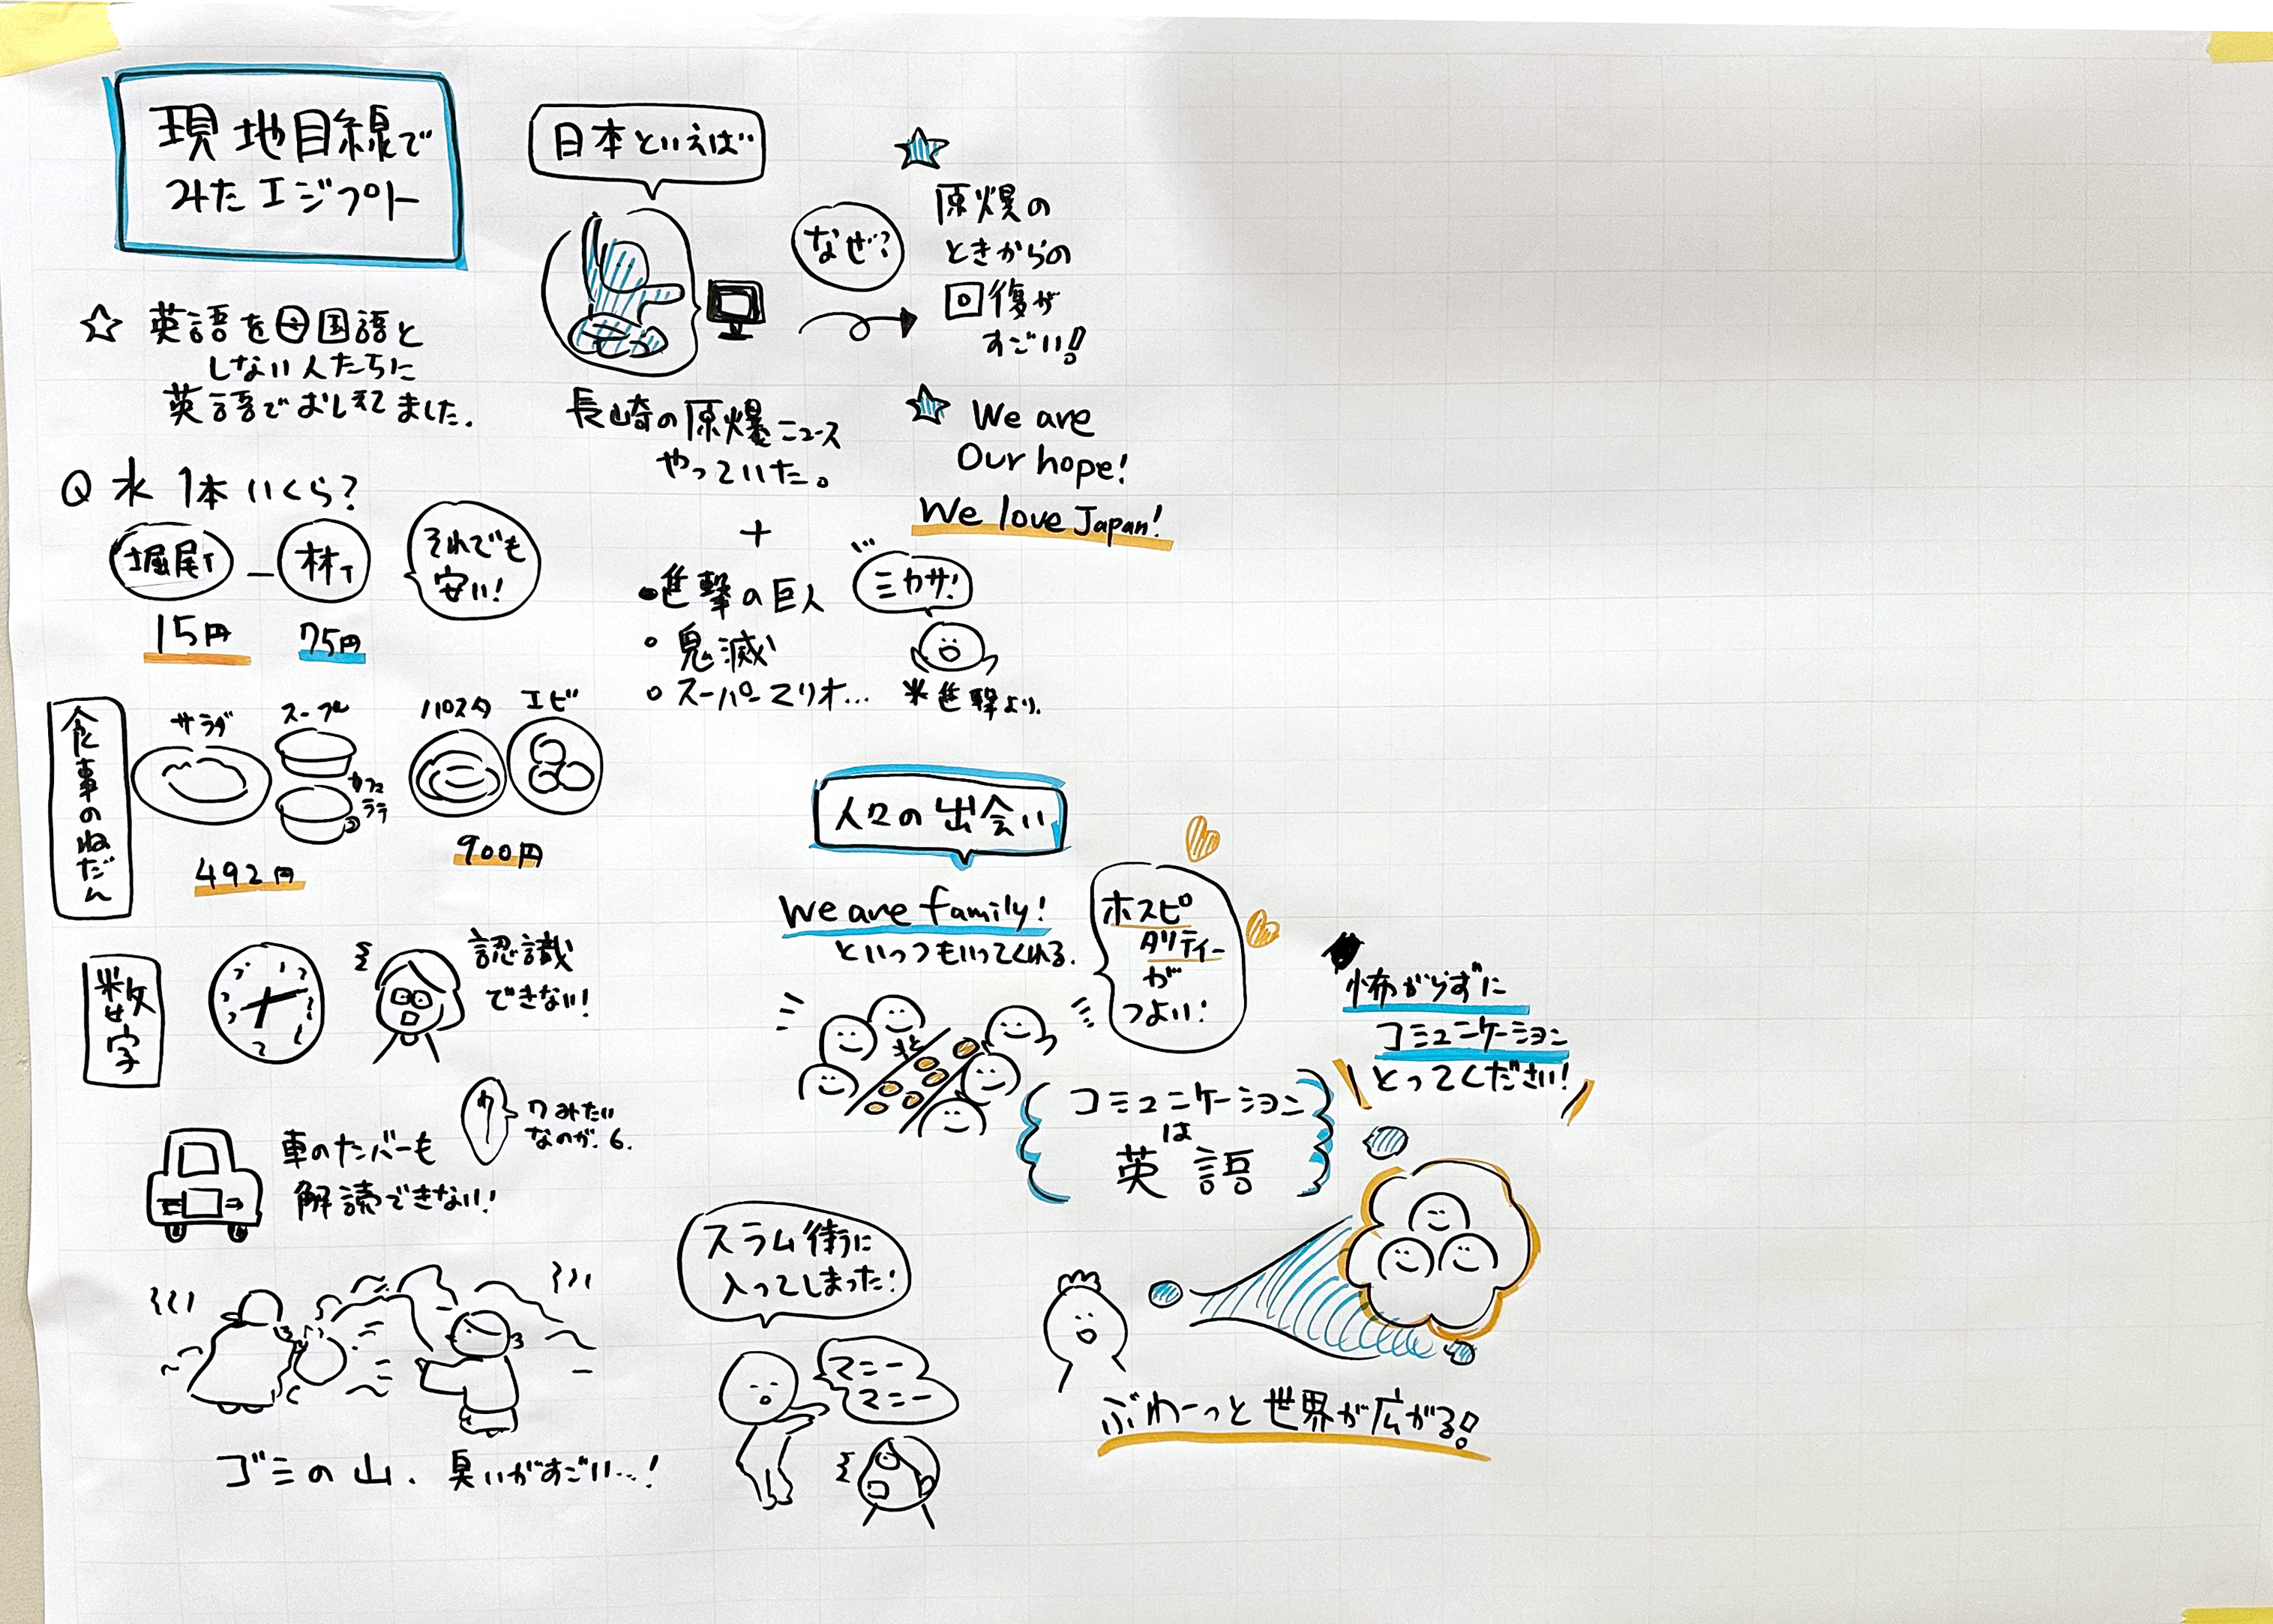 現地目線で
みたエジプト
☆ 英語を母国語と
しない人たちに
英語でおしえてました.
Q 水 1本いくら?
堀尾T - 林T
15円 75円
それでも
安い!
食事のねだん
サラダ
スープ
カフェ
ラテ
492円
パスタ
エビ
900円
数字
認識
できない!
車のナンバーも
解読できない!
7みたい
なのが. 6.
ゴミの山. 臭いがすごい…!
日本といえば
長崎の原爆ニュース
やっていた。
+
•進撃の巨人
○ 鬼滅
○ スーパーマリオ…
ミカサ!
※進撃より.
なぜ?
原爆の
ときからの
回復が
すごい!
We are
Our hope!
We love Japan!
人々の出会い
We are family!
といっつもいってくれる.
ホスピ
タリティー
が
つよい!
コミュニケーション
は
英語
怖がらずに
コミュニケーション
とってください!
スラム街に
入ってしまった!
マニー
マニー
ぶわーっと世界が広がる!